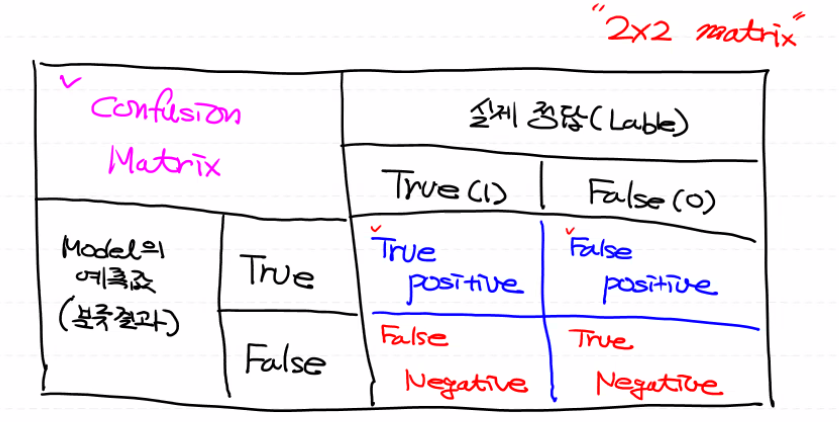 "2x2 matrix"
Confusion
Matrix
실제 정답(Lable)
True(1)
False(0)
Model의
예측값
(분류결과)
True
True
positive
False
positive
False
False
Negative
True
Negative